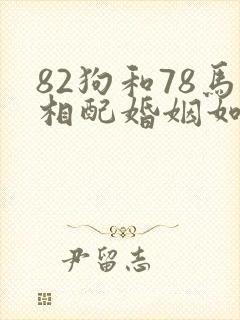 82狗和78馬
相配婚姻如
尹留志